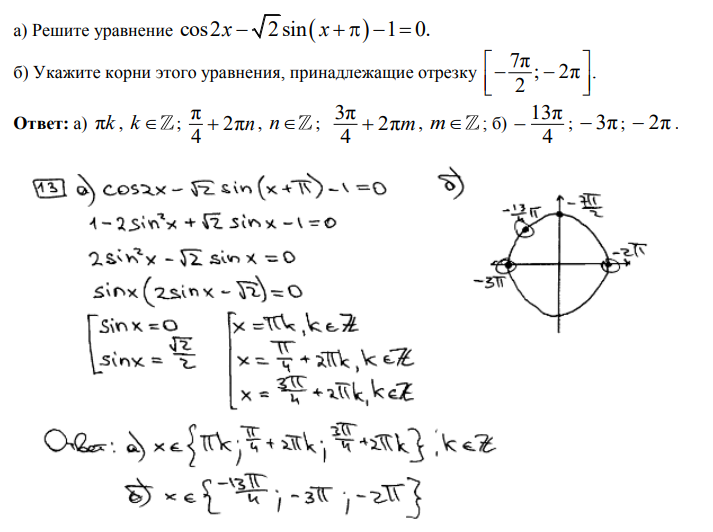 а) Решите уравнение cos2x − √2 sin(x + π) − 1 = 0.
б) Укажите корни этого уравнения, принадлежащие отрезку [−7π/2; −2π].
Ответ: а) πk, k ∈ ℤ; π/4 + 2πn, n ∈ ℤ; 3π/4 + 2πm, m ∈ ℤ; б) −13π/4; −3π; −2π.
13 а) cos2x − √2 sin(x+π) − 1 = 0
1 − 2sin²x + √2 sinx − 1 = 0
2sin²x − √2 sinx = 0
sinx(2sinx − √2) = 0
[ sinx = 0 [ x = πk, k ∈ ℤ
sinx = √2/2 x = π/4 + 2πk, k ∈ ℤ
x = 3π/4 + 2πk, k ∈ ℤ
б)
−13/4 π −7π/2
−2π
−3π
Ответ: а) x ∈ {πk; π/4 + 2πk; 3π/4 + 2πk}, k ∈ ℤ
б) x ∈ {−13π/4; −3π; −2π}